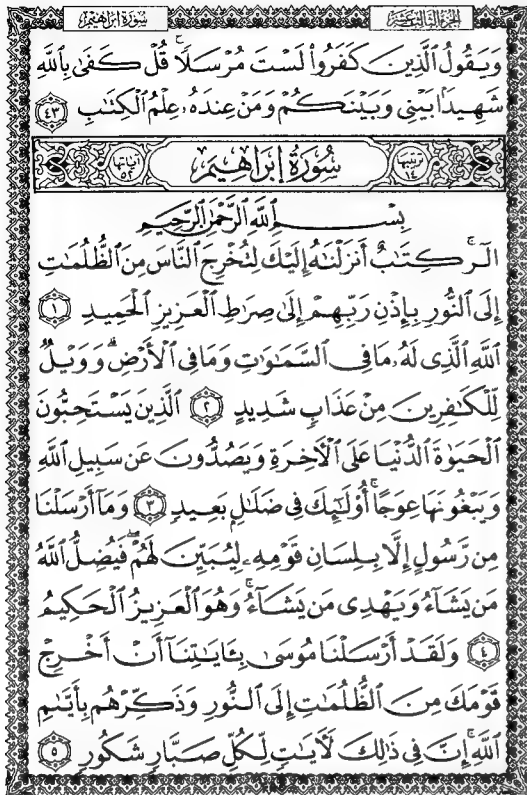 الجزء الثالث عشر
سورة إبراهيم
وَيَقُولُ ٱلَّذِينَ كَفَرُوا۟ لَسْتَ مُرْسَلًا ۚ قُلْ كَفَىٰ بِٱللَّهِ
شَهِيدًۢا بَيْنِى وَبَيْنَكُمْ وَمَنْ عِندَهُۥ عِلْمُ ٱلْكِتَٰبِ ٤٣
ترتيبها ١٤
سُورَةُ إِبْرَاهِيمَ
آياتها ٥٢
بِسْمِ ٱللَّهِ ٱلرَّحْمَٰنِ ٱلرَّحِيمِ
الٓر ۚ كِتَٰبٌ أَنزَلْنَٰهُ إِلَيْكَ لِتُخْرِجَ ٱلنَّاسَ مِنَ ٱلظُّلُمَٰتِ
إِلَى ٱلنُّورِ بِإِذْنِ رَبِّهِمْ إِلَىٰ صِرَٰطِ ٱلْعَزِيزِ ٱلْحَمِيدِ ١
ٱللَّهِ ٱلَّذِى لَهُۥ مَا فِى ٱلسَّمَٰوَٰتِ وَمَا فِى ٱلْأَرْضِ ۗ وَوَيْلٌ
لِّلْكَٰفِرِينَ مِنْ عَذَابٍ شَدِيدٍ ٢ ٱلَّذِينَ يَسْتَحِبُّونَ
ٱلْحَيَوٰةَ ٱلدُّنْيَا عَلَى ٱلْءَاخِرَةِ وَيَصُدُّونَ عَن سَبِيلِ ٱللَّهِ
وَيَبْغُونَهَا عِوَجًا ۚ أُو۟لَٰٓئِكَ فِى ضَلَٰلٍۭ بَعِيدٍ ٣ وَمَآ أَرْسَلْنَا
مِن رَّسُولٍ إِلَّا بِلِسَانِ قَوْمِهِۦ لِيُبَيِّنَ لَهُمْ ۖ فَيُضِلُّ ٱللَّهُ
مَن يَشَآءُ وَيَهْدِى مَن يَشَآءُ ۚ وَهُوَ ٱلْعَزِيزُ ٱلْحَكِيمُ
٤ وَلَقَدْ أَرْسَلْنَا مُوسَىٰ بِـَٔايَٰتِنَآ أَنْ أَخْرِجْ
قَوْمَكَ مِنَ ٱلظُّلُمَٰتِ إِلَى ٱلنُّورِ وَذَكِّرْهُم بِأَيَّىٰمِ
ٱللَّهِ ۚ إِنَّ فِى ذَٰلِكَ لَءَايَٰتٍ لِّكُلِّ صَبَّارٍ شَكُورٍ ٥